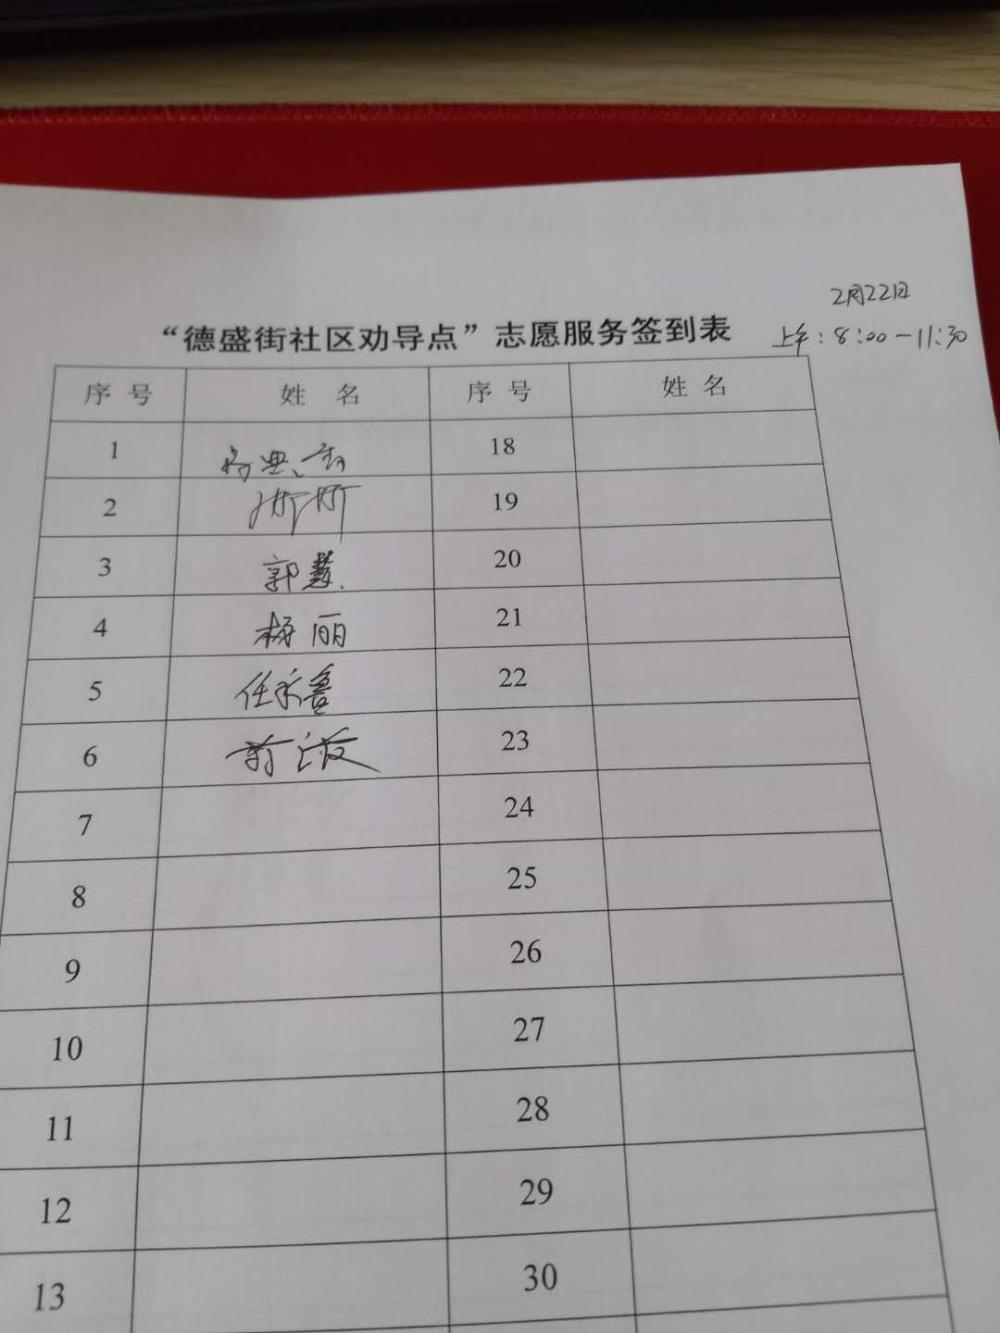 2月22日
“德盛街社区劝导点”志愿服务签到表
上午：8:00－11:30
序号 姓名 序号 姓名
1 18
2 19
3 郭慧 20
4 杨丽 21
5 任永鲁 22
6 23
7 24
8 25
9 26
10 27
11 28
12 29
13 30